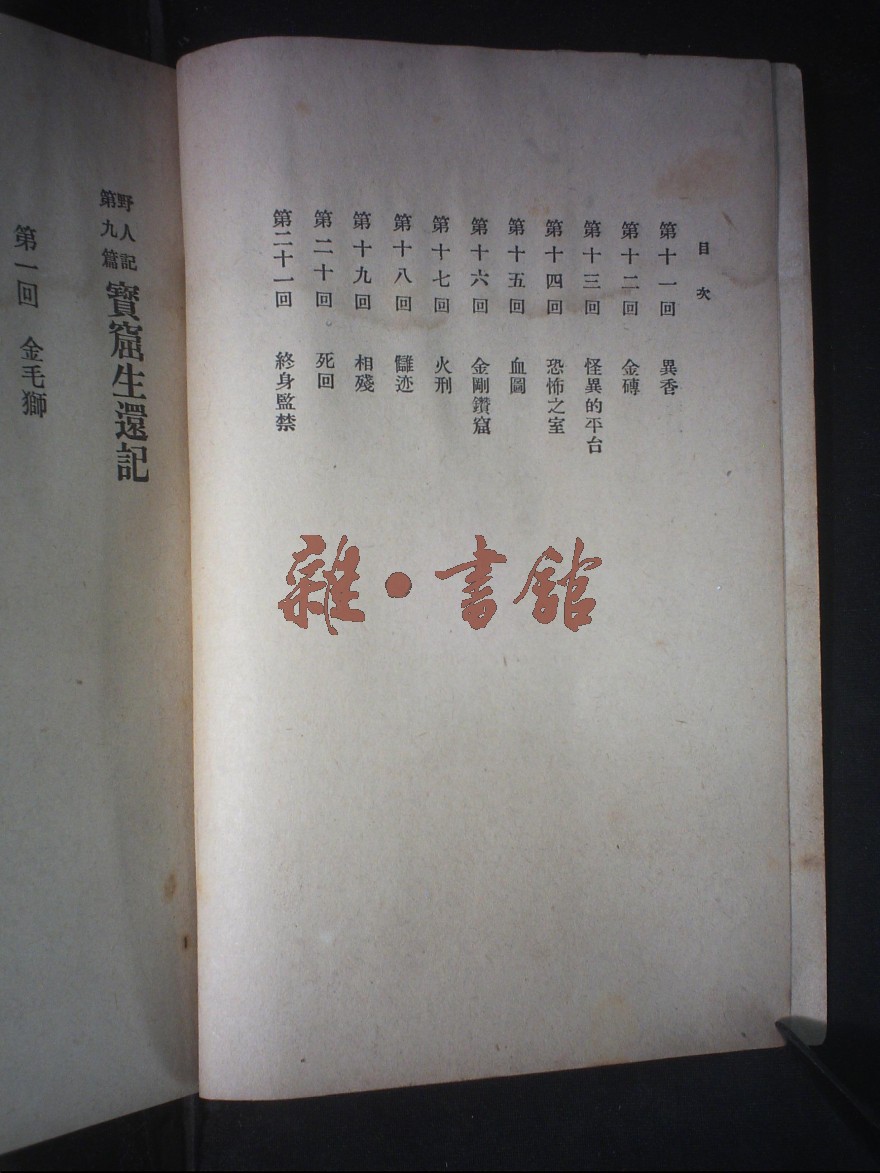 目次
第十一回 異香
第十二回 金磚
第十三回 怪異的平台
第十四回 恐怖之室
第十五回 血圖
第十六回 金剛鑽窟
第十七回 火刑
第十八回 讎迹
第十九回 相殘
第二十回 死回
第二十一回 終身監禁
野人記
第九篇
寶窟生還記
第一回 金毛獅
雜·書館